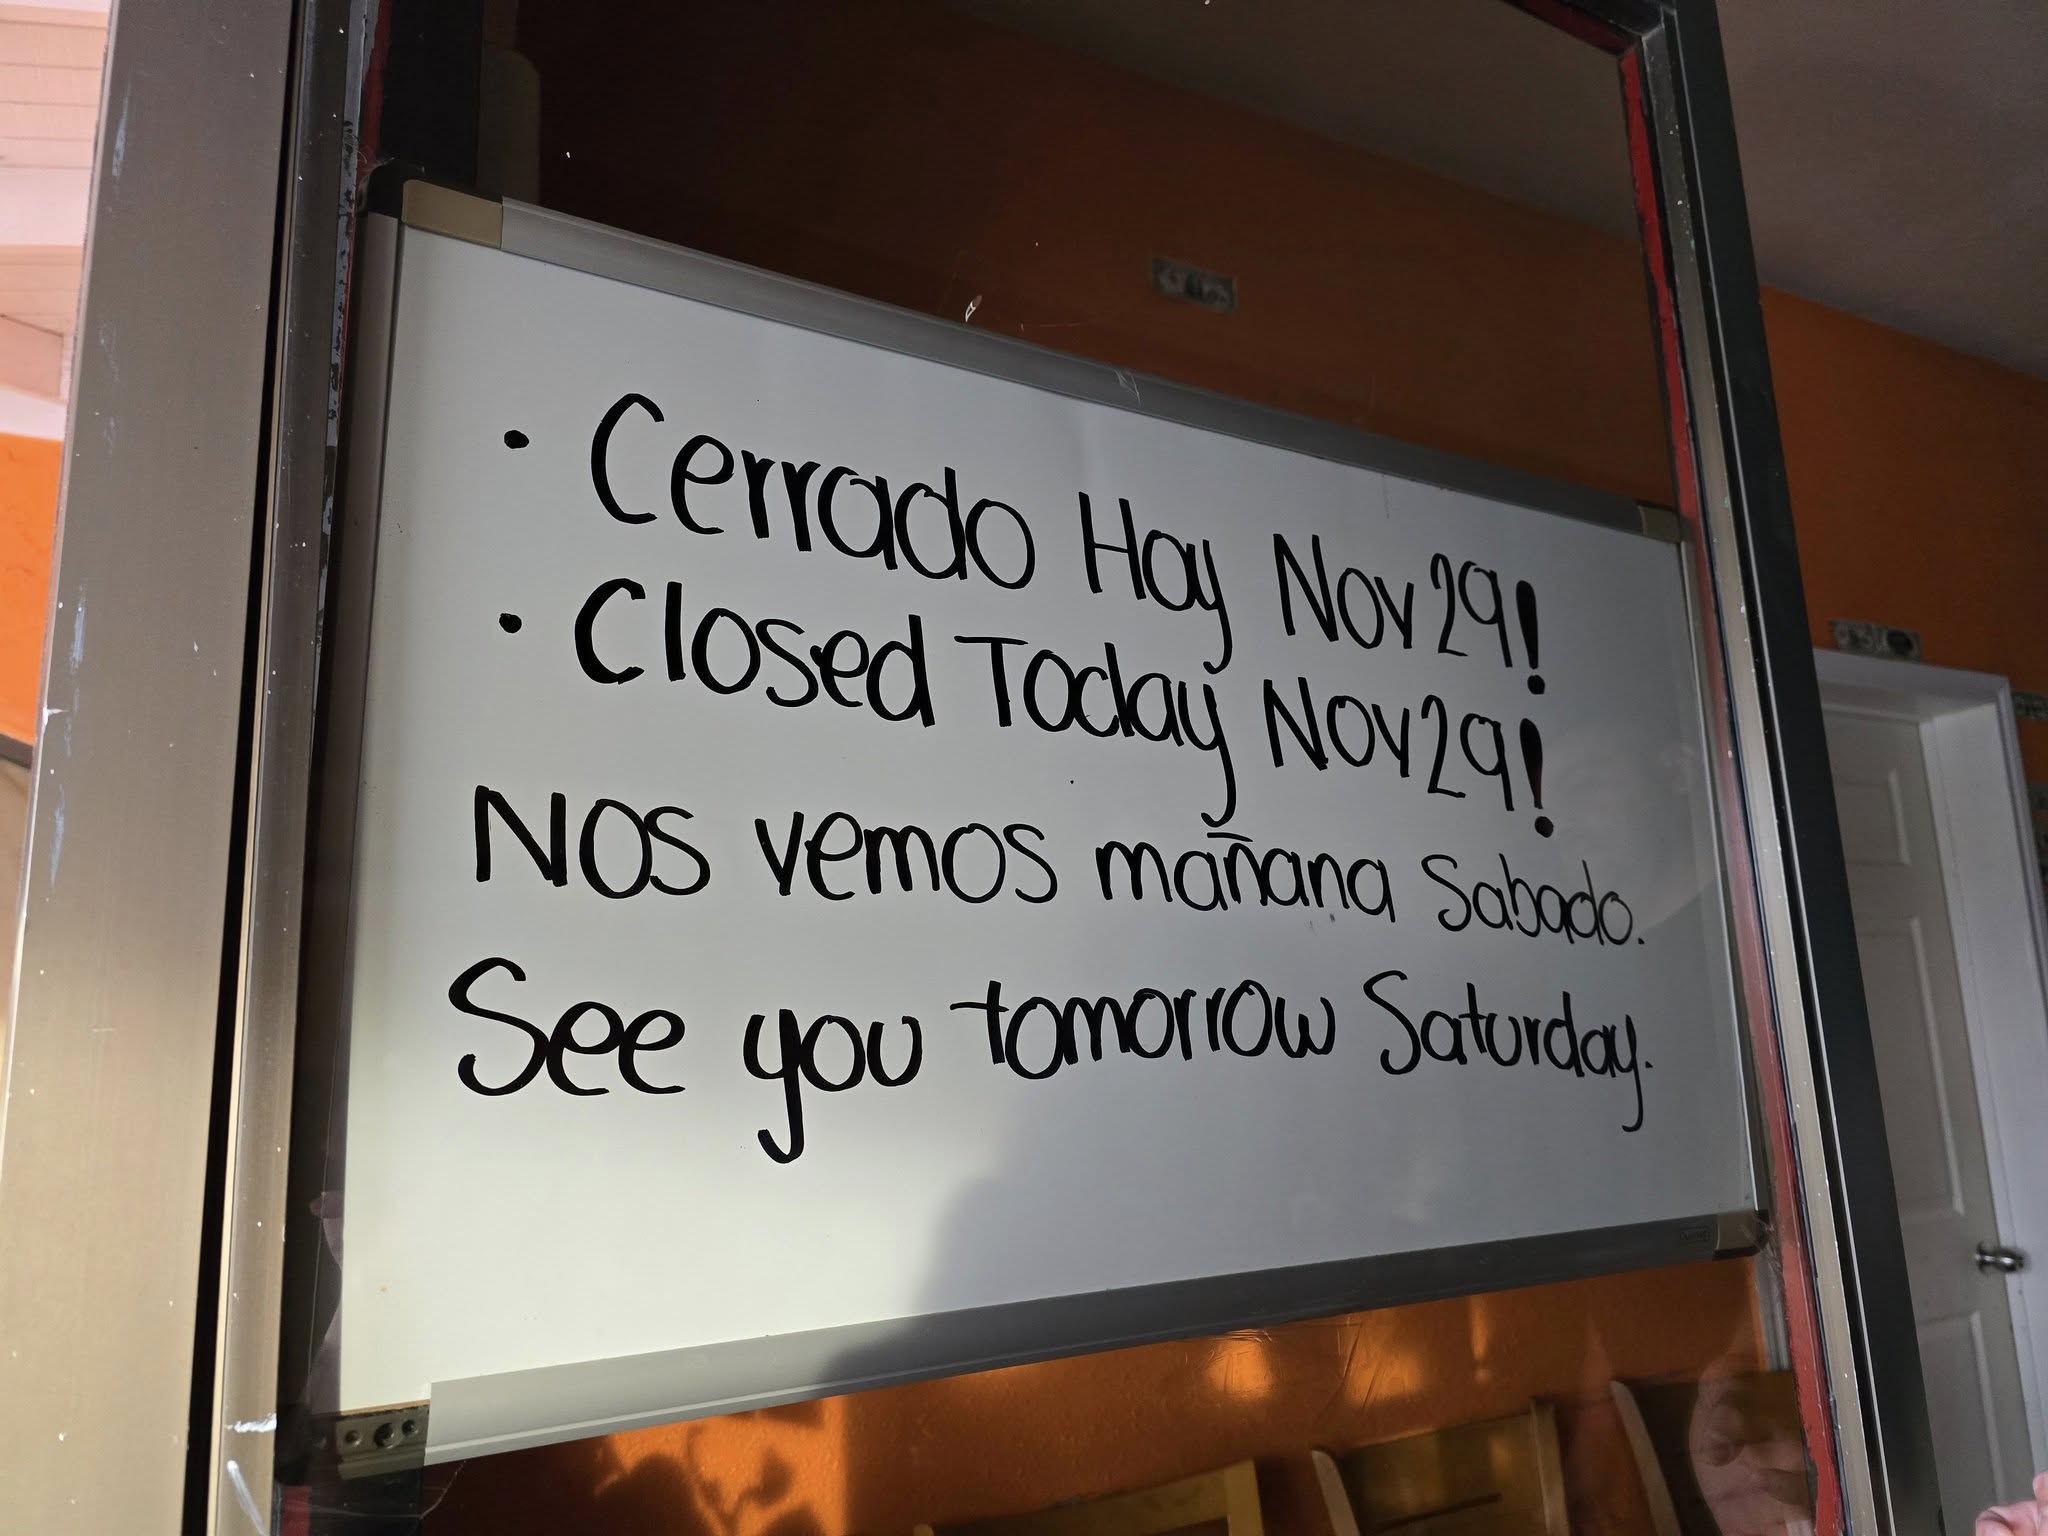 • Cerrado Hoy Nov 29!
• Closed Today Nov 29!
Nos vemos mañana Sabado.
See you tomorrow Saturday.